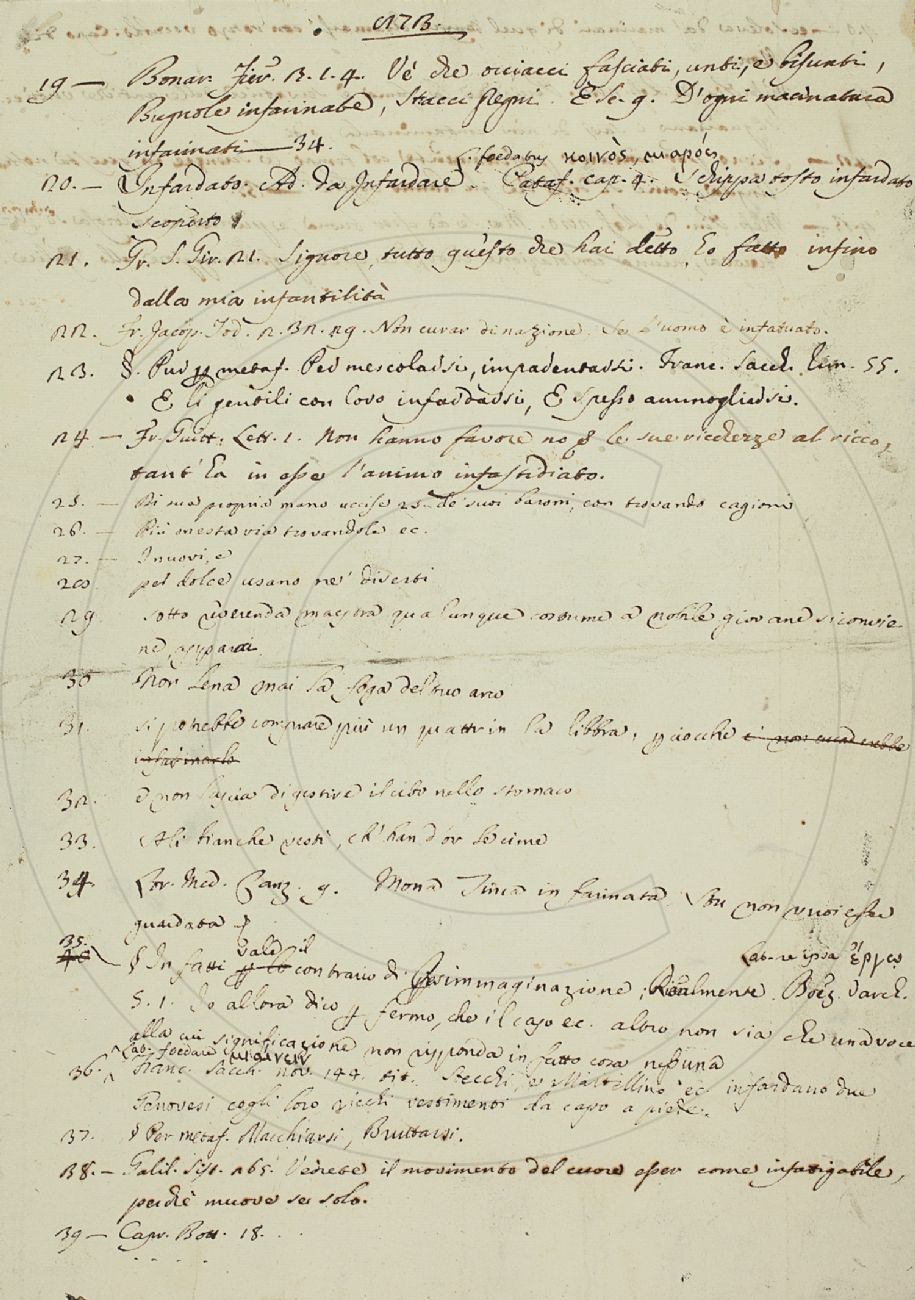 273.
19 — Bonar. Fier. 3. 1. 4. V'è che occiacci fasciati, unti, e bisunti,
Bugnole infarinate, Stacci pregni. E Se. 9. D'ogni macinatura
infarinati — 34.
L. foedatus κοινός, μιαρός
20. — Infardato. Ad. da Infardare. Pataf. cap. 4. Schippa tosto infardato
scoperto
21. Gr. S. Gir. 21. Signore, tutto questo che hai detto, Eo fatto infino
dalla mia infantilità
22. Fr. Jacop. Tod. 2. 32. 29. Non curar di nazione, Se l'uomo è infatuato.
23. §. Pur p metaf. Per mescolarsi, imparentarsi. Franc. Sacch. Rim. 55.
E li gentili con loro infardarsi, E spesso ammogliarsi.
24 — Fr. Guitt. Lett. 1. Non hanno favore no p le sue ricchezze al ricco,
tant'Ea in esse l'animo infastidiato.
25. — Di sua propria mano uccise 25. de' suoi baroni, con trovando cagioni
26. — Più onesta via trovandola ec.
27. — Innovi, e
28 per dolce usano ne' diversi
29. sotto reverenda maestra qualunque costume a nobile giovane si convie-
ne apparai
30 Non lena mai la foga del tuo arco
31. si potrebbe comprare più un quattrin la libbra, p ciocche e' non accaderebbe
infarinarlo
32. e non lascia digestire il cibo nello stomaco
33. Ali bianche vesti, ch' han d'or le cime
34. Lor. Med. Canz. 9. Mona Tinca infarinata, Stu non vuoi esser
guardata
35. 40 § In fatti vale il p lo contrario di Per immaginazione, Realmente. Lat. re ipsa ἔργῳ Boez. Varch.
5. 1. Io allora dico p fermo, che il caso ec. altro non sia che una voce
alla cui significazione non risponda in fatto cosa nessuna
Lat. foedare μιαίνειν
36. Franc. Sacch. nov. 144. tit. Stecchi, e Martellino ec. infardano due
Genovesi cogli loro ricchi vestimenti da capo a piede.
37. § Per metaf. Macchiarsi, Bruttarsi.
38. — Galil. Sist. 265. Vedrete il movimento del cuore esser come infatigabile,
perchè muove se solo.
39 — Capr. Bott. 18.